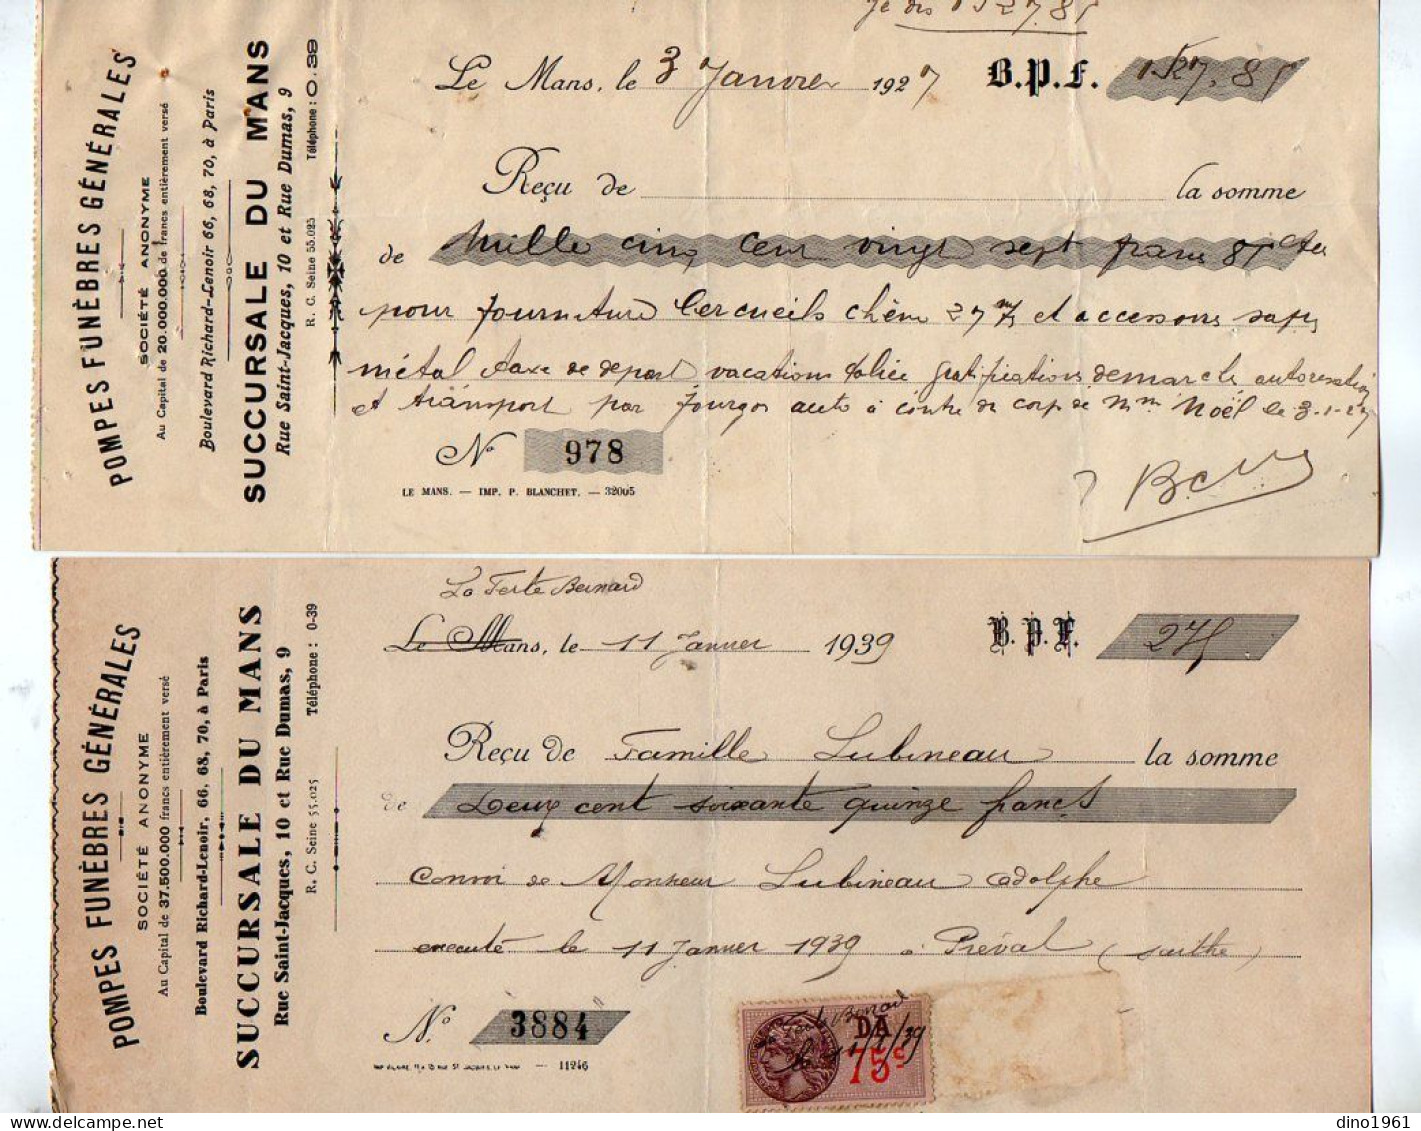 Je dis 1527,85
Le Mans, le 3 Janvier 1927 B.P.F. 1527,85
Reçu de la somme
de Mille cinq cent vingt sept francs 85 cts
pour fourniture Cercueils chêne 27 m/m et accessoires
métal taxe de depart vacations police gratifications demarche autorisation
et transport par fourgon auto à contre de corp de Mme Noël le 3-1-27
No 978
LE MANS. — IMP. P. BLANCHET. — 32005
POMPES FUNÈBRES GÉNÉRALES
SOCIÉTÉ ANONYME
Au Capital de 20.000.000 de francs entièrement versé
Boulevard Richard-Lenoir 66, 68, 70, à Paris
SUCCURSALE DU MANS
Rue Saint-Jacques, 10 et Rue Dumas, 9
R. C. Seine 55.025 Téléphone : 0.39
La Ferte Bernard
Le Mans, le 11 Janvier 1939 B.P.F. 275
Reçu de Famille Lubineau la somme
de Deux cent soixante quinze francs
Convoi de Monsieur Lubineau Adolphe
executé le 11 Janvier 1939 a Préval (sarthe)
No. 3884
11246
DA
75c
POMPES FUNÈBRES GÉNÉRALES
SOCIÉTÉ ANONYME
Au Capital de 37.500.000 francs entièrement versé
Boulevard Richard-Lenoir, 66, 68, 70, à Paris
SUCCURSALE DU MANS
Rue Saint-Jacques, 10 et Rue Dumas, 9
R. C. Seine 55.025 Téléphone : 0-39
dino1961